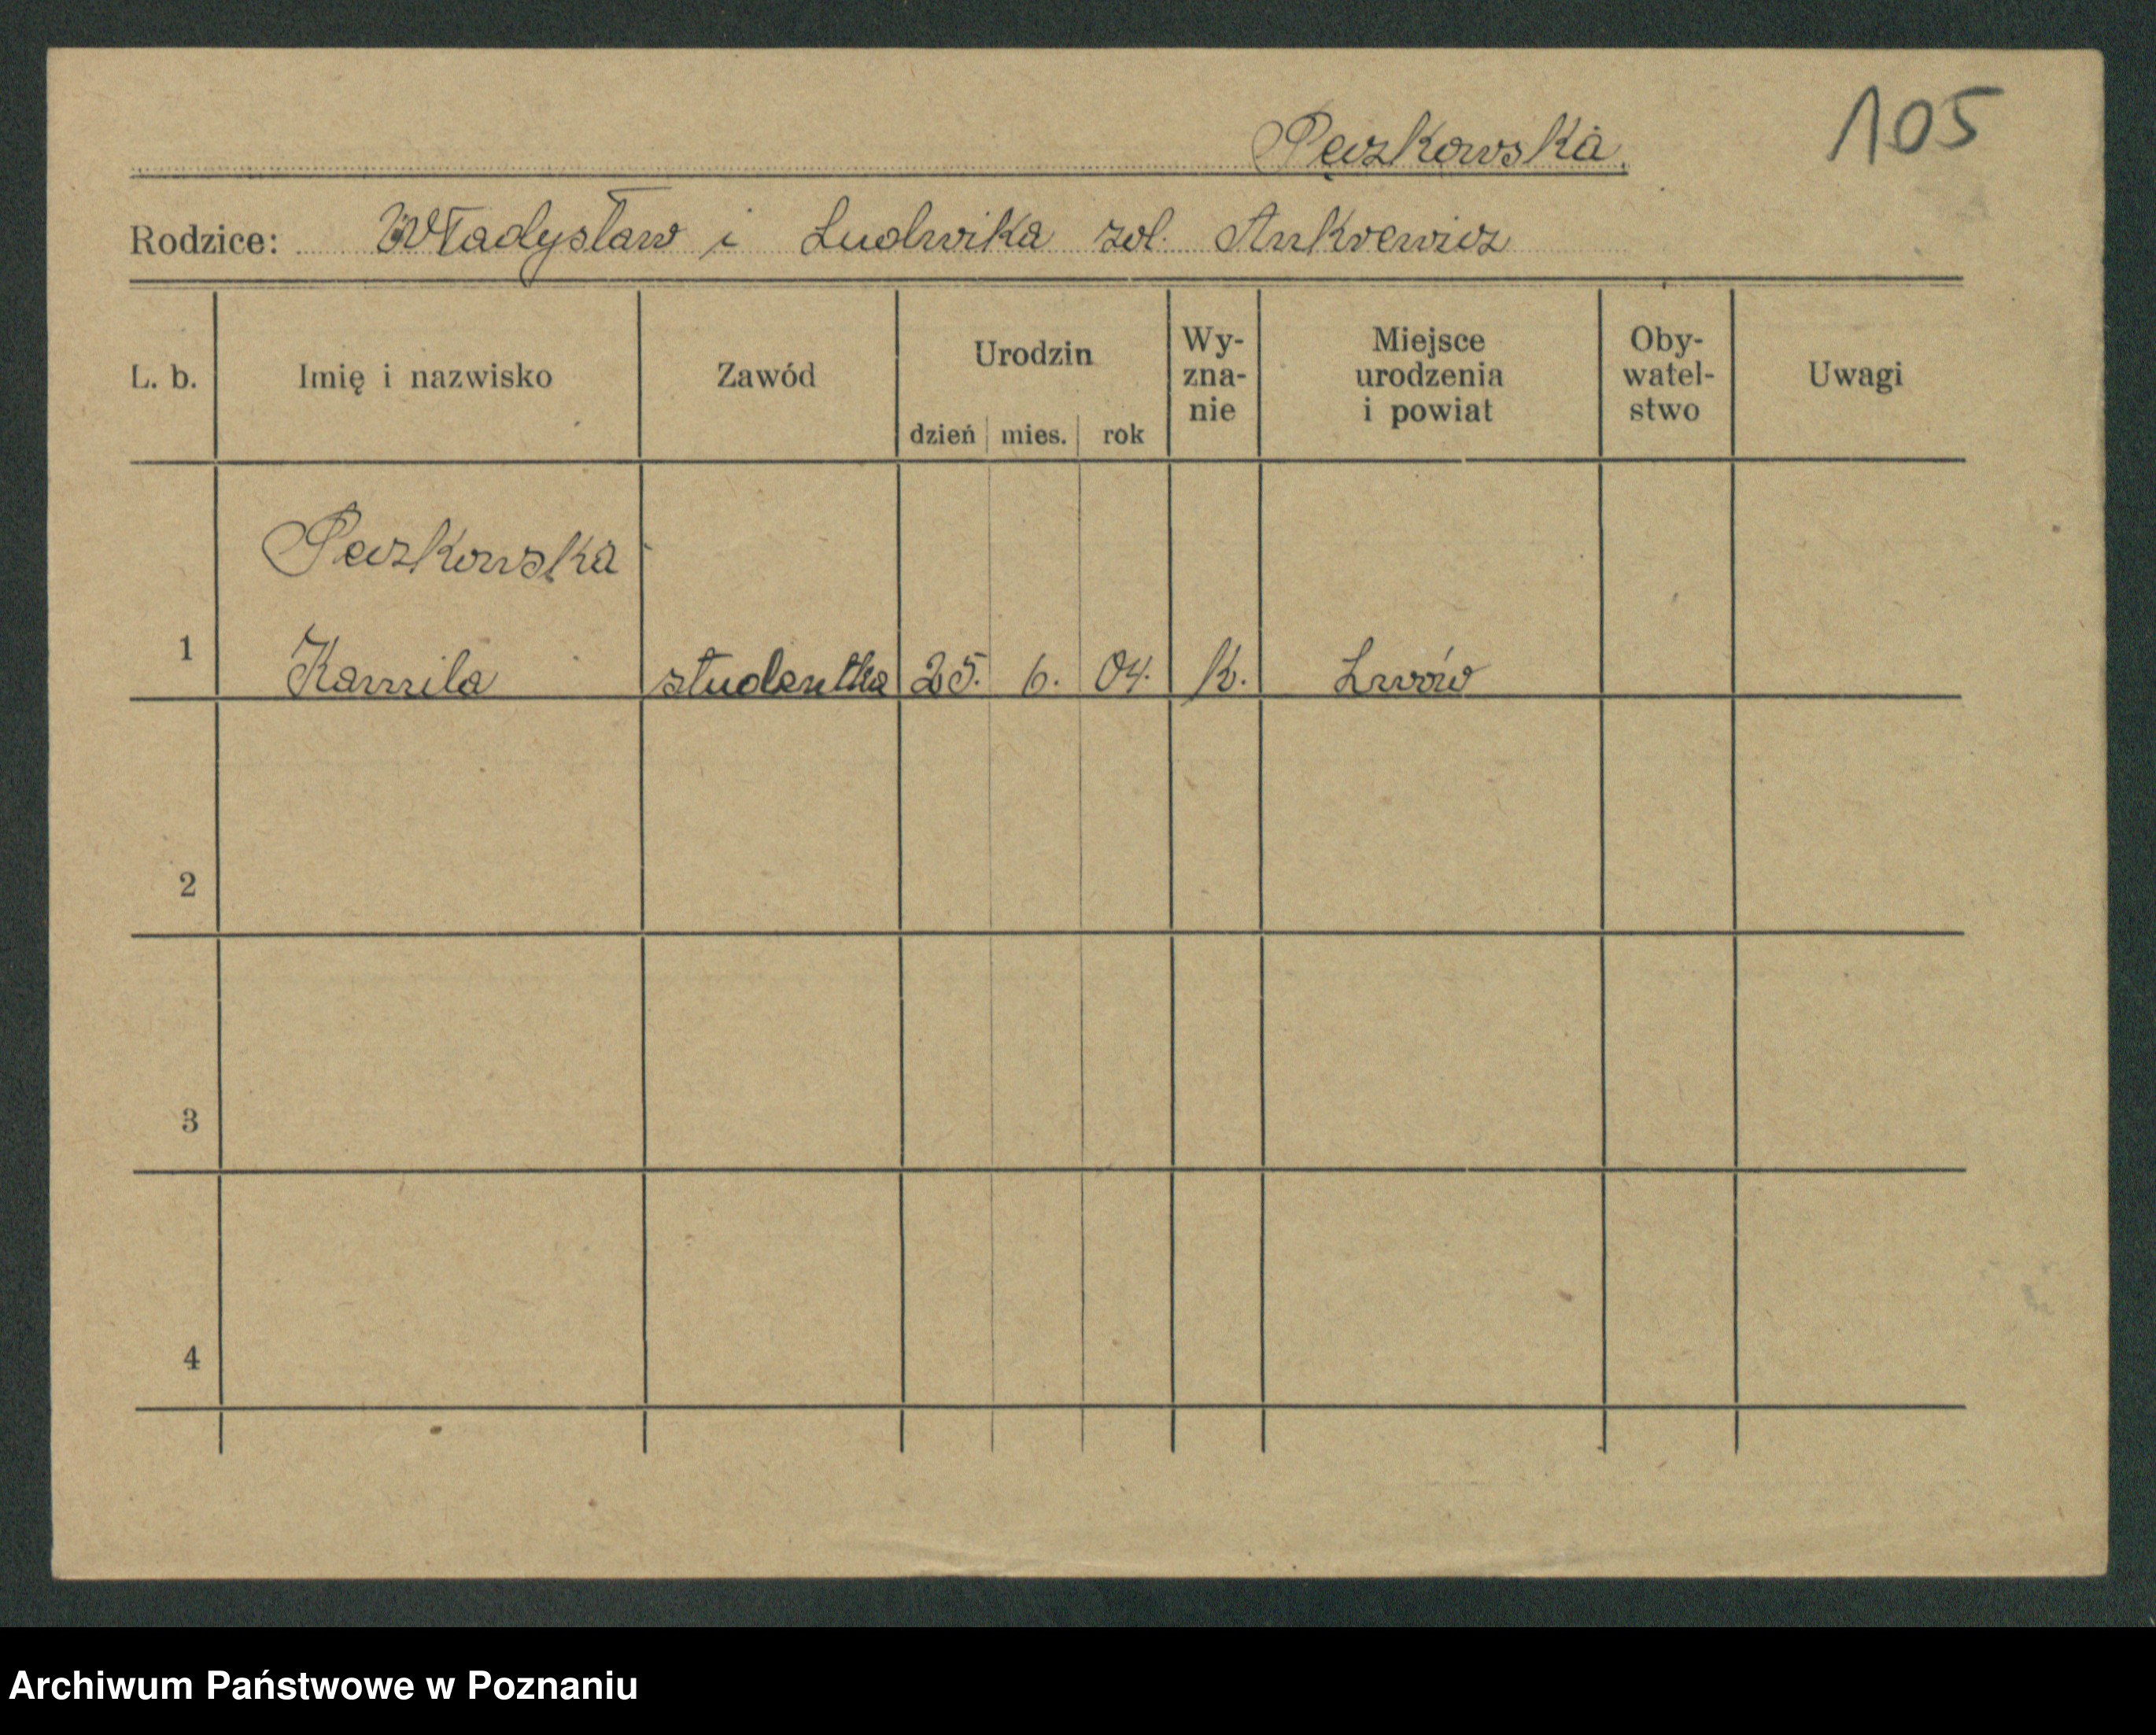 105
Peczkowska.
Rodzice: Władysław i Ludwika zd. Ankrewicz
L. b. Imię i nazwisko Zawód Urodzin dzień mies. rok Wy-zna-nie Miejsce urodzenia i powiat Oby-watel-stwo Uwagi
Peczkowska
1 Kamila studentka 25. 6. 04. k. Lwów
2
3
4
Archiwum Państwowe w Poznaniu